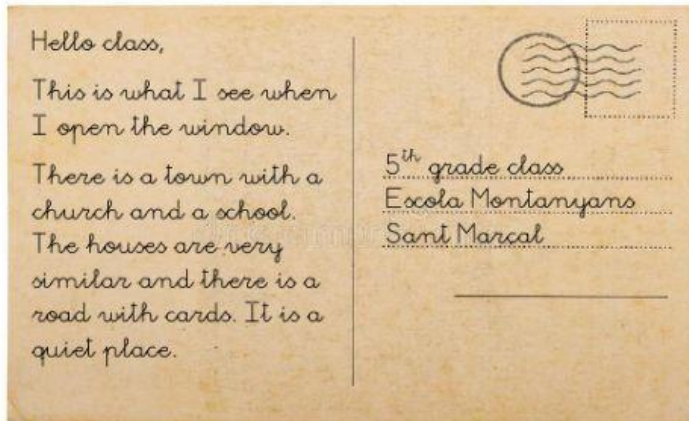 Hello class,
This is what I see when
I open the window.
There is a town with a
church and a school.
The houses are very
similar and there is a
road with cards. It is a
quiet place.
5th grade class
Escola Montanyans
Sant Marçal